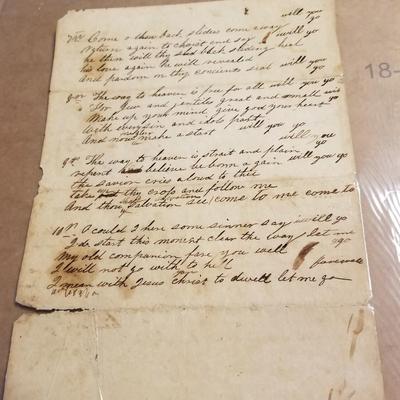 7th Come o thou back slider come away will you go
return again to christ and say i will go
he then will thy sad back sliding heal
his love again he will revealed
and pardon on thy concients seal will you go
8th The way to heaven is free for all will you go
For Jew and gentile great and small will you go
Make up your mind give god your heart will you go
With every sin and idols part
And now make a start will you go
9th The way to heaven is strait and plain will you go
repent believe be born a gain will you go
The savior cries aloud to thee
take thy cross and follow me
And thou Salvation see come to me come to
10th O could I hear some sinner say i will go
I do start this moment clear the way let me go
My old companion fare you well farewell
I will not go with to hell
I mean with Jesus Christ to dwell let me go
18-